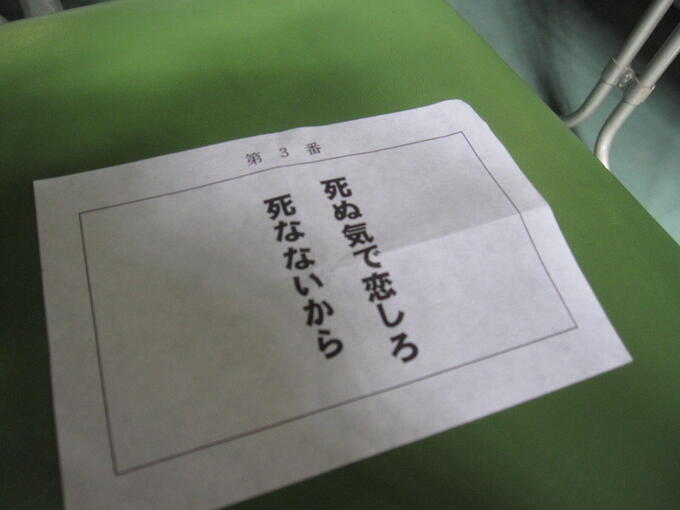 第3番
死ぬ気で恋しろ
死なないから